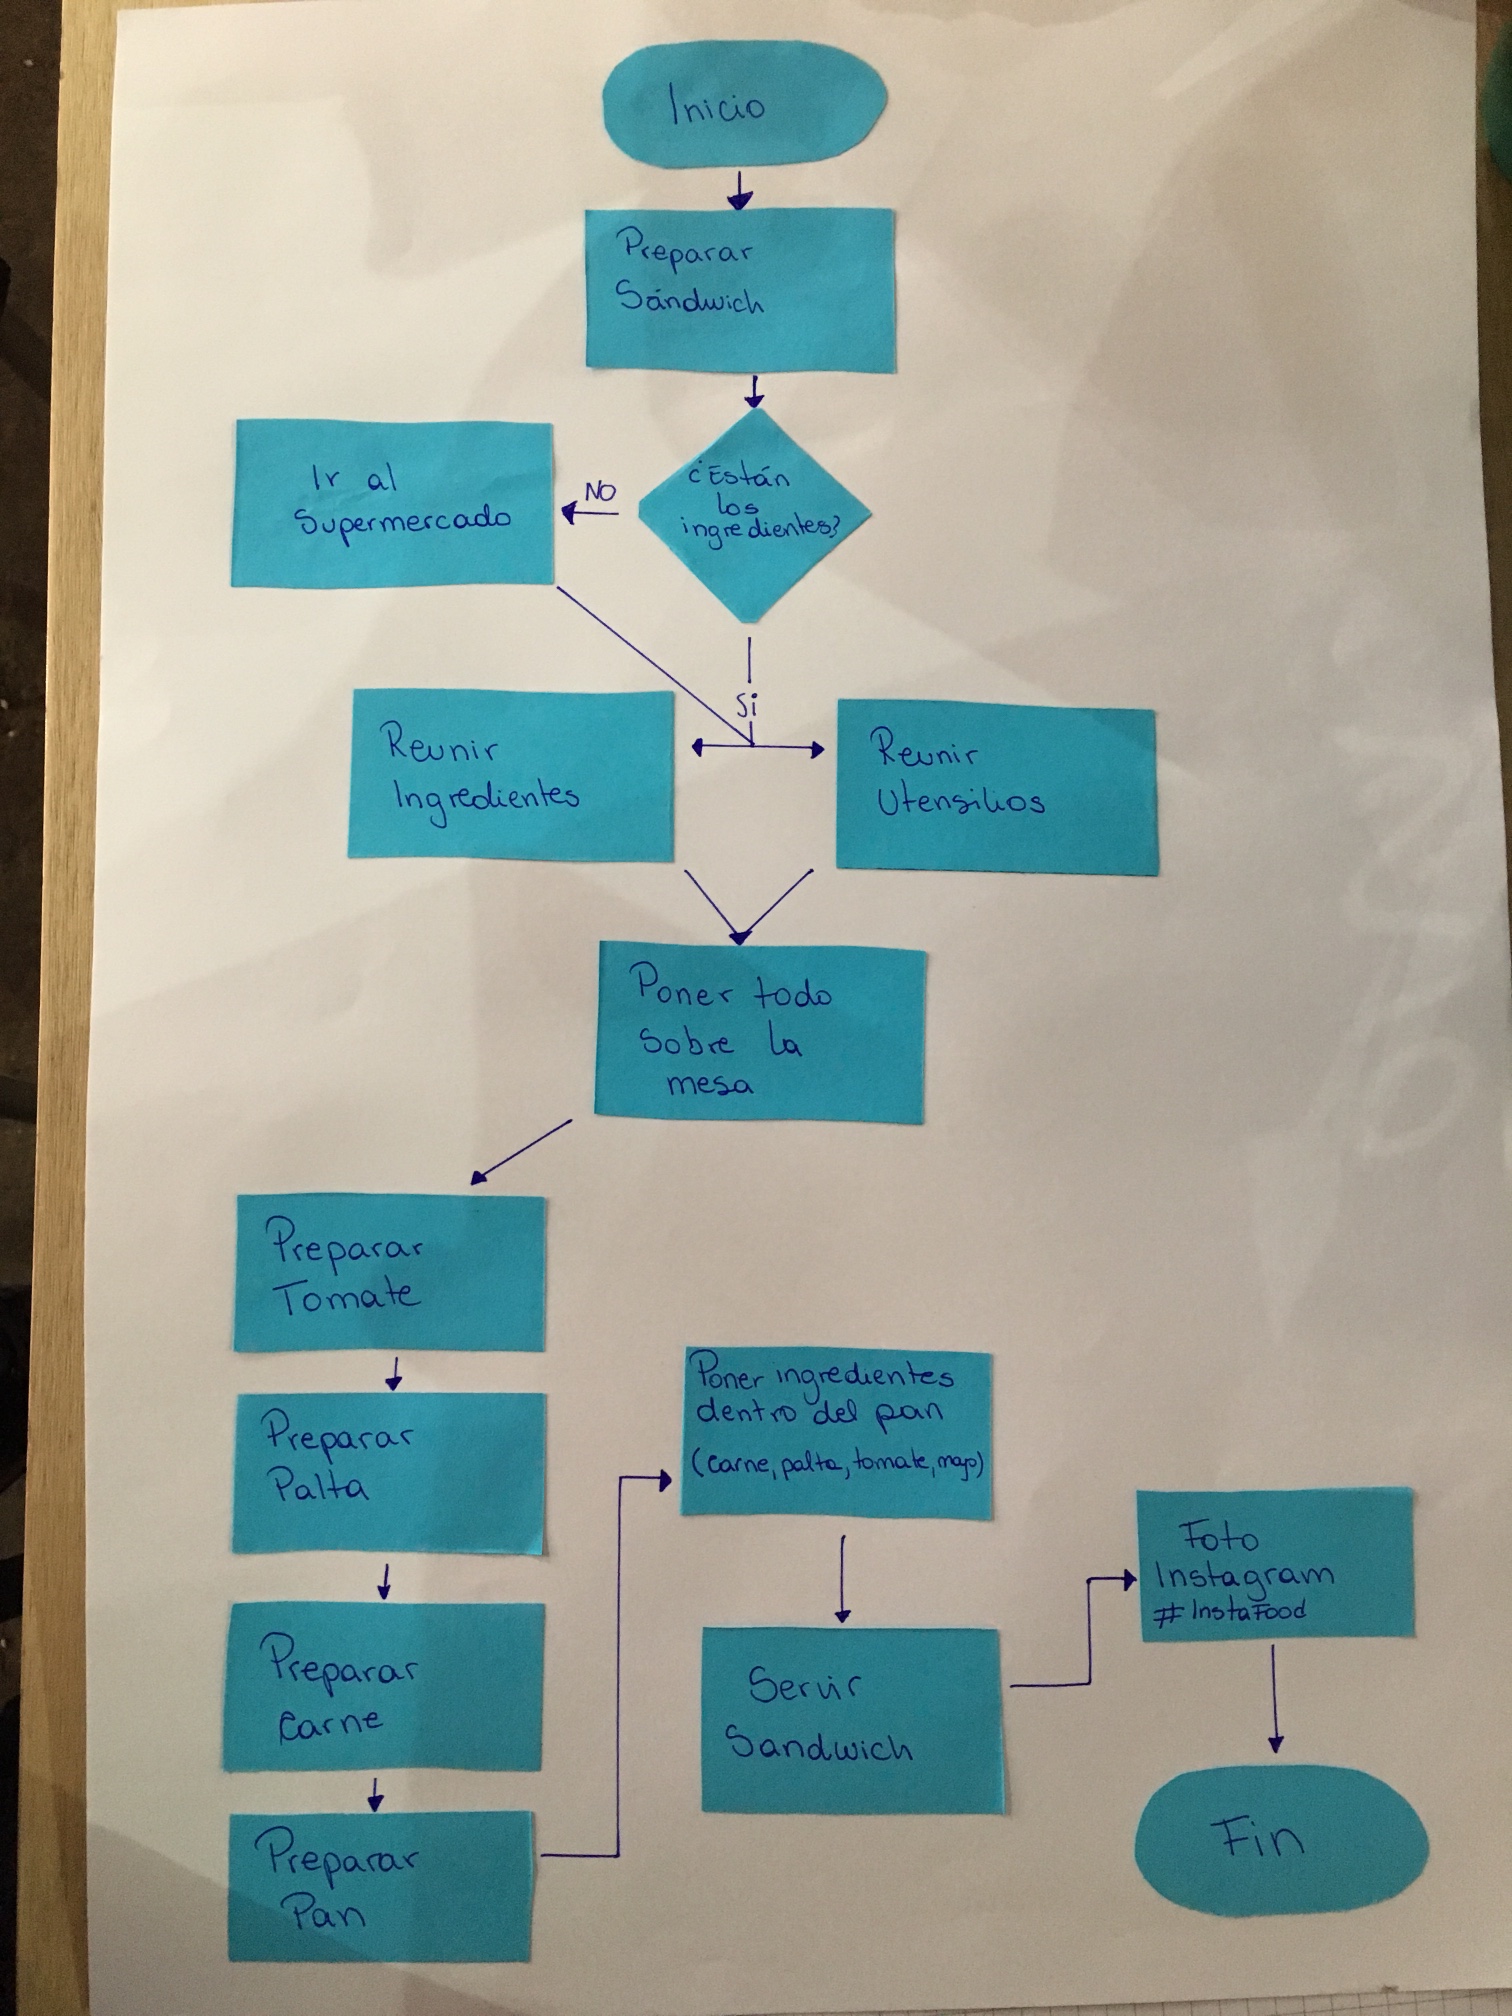 Inicio
Preparar
Sándwich
¿Están
los
ingredientes?
NO
Ir al
Supermercado
Si
Reunir
Ingredientes
Reunir
Utensilios
Poner todo
sobre la
mesa
Preparar
Tomate
Preparar
Palta
Preparar
Carne
Preparar
Pan
Poner ingredientes
dentro del pan
(carne, palta, tomate, mayo)
Servir
Sandwich
Foto
Instagram
#InstaFood
Fin